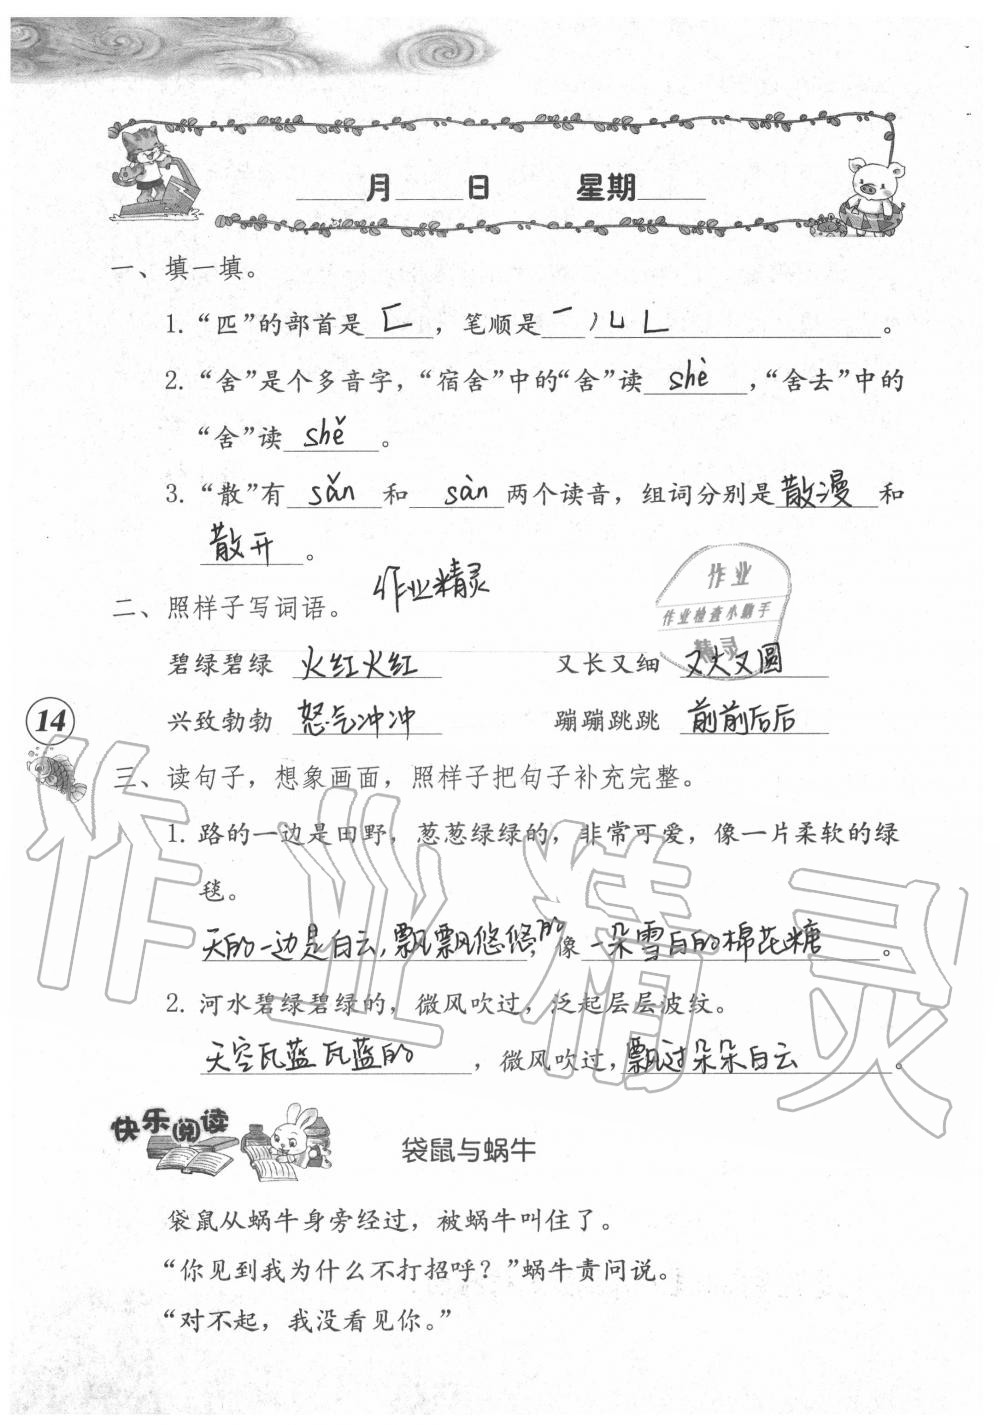 月 日 星期
一、填一填。
1. “匹”的部首是 匚 ，笔顺是 一 丿 乚 ㇄ 。
2. “舍”是个多音字，“宿舍”中的“舍”读 shè ，“舍去”中的
“舍”读 shě 。
3. “散”有 sǎn 和 sàn 两个读音，组词分别是 散漫 和
散开 。
作业精灵
作业
作业检查小助手
精灵
二、照样子写词语。
碧绿碧绿 火红火红 又长又细 又大又圆
兴致勃勃 怒气冲冲 蹦蹦跳跳 前前后后
14
三、读句子，想象画面，照样子把句子补充完整。
1. 路的一边是田野，葱葱绿绿的，非常可爱，像一片柔软的绿
毯。
天的一边是白云，飘飘悠悠的，像 一朵雪白的棉花糖 。
2. 河水碧绿碧绿的，微风吹过，泛起层层波纹。
天空瓦蓝瓦蓝的 ，微风吹过，飘过朵朵白云 。
作业精灵
快乐阅读
袋鼠与蜗牛
袋鼠从蜗牛身旁经过，被蜗牛叫住了。
“你见到我为什么不打招呼？”蜗牛责问说。
“对不起，我没看见你。”